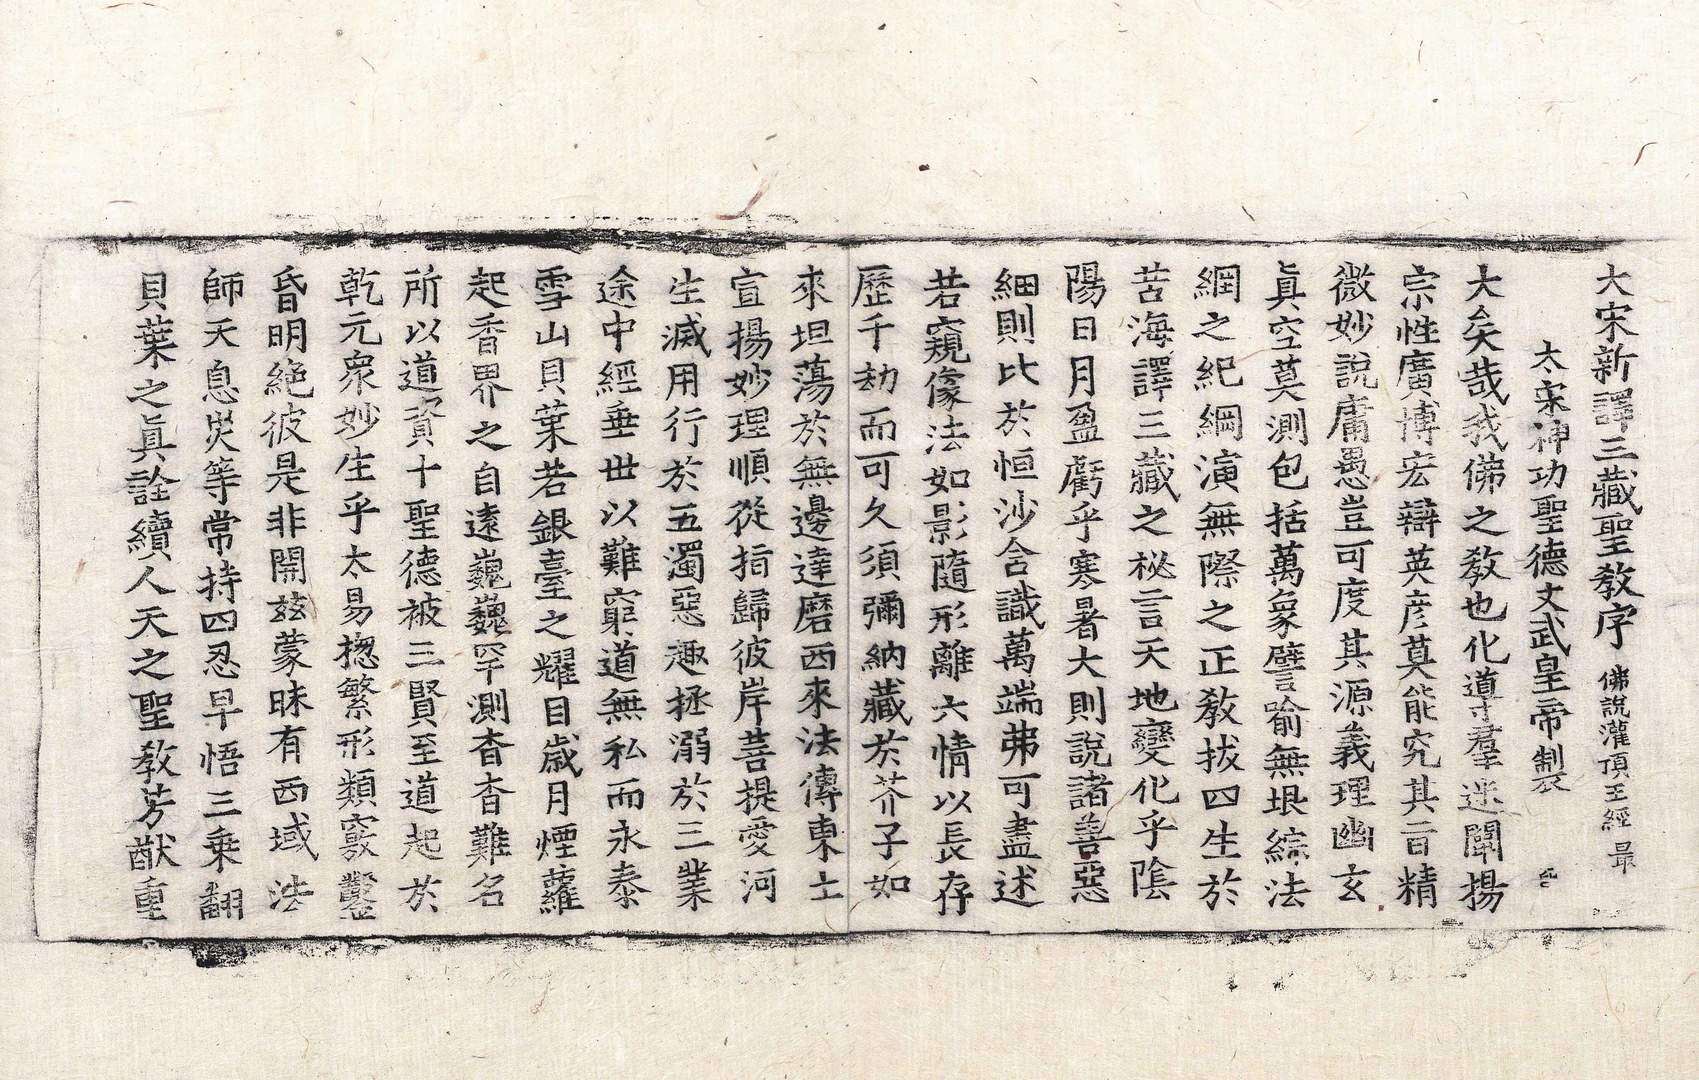 大宋新譯三藏聖教序 佛說灌頂王經 最
太宋神功聖德文武皇帝製
大矣哉我佛之教也化導羣迷闡揚
宗性廣博宏辯英彦莫能究其旨精
微妙說庸愚豈可度其源義理幽玄
眞空莫測包括萬象譬喻無垠綜法
綱之紀綱演無際之正教拔四生於
苦海譯三藏之秘言天地變化乎陰
陽日月盈虧乎寒暑大則說諸善惡
細則比於恒沙含識萬端弗可盡述
若窺像法如影隨形離六情以長存
歷千劫而可久須彌納藏於芥子如
來坦蕩於無邊達磨西來法傳東土
宣揚妙理順從指歸彼岸菩提愛河
生滅用行於五濁惡趣拯溺於三業
途中經垂世以難窮道無私而永泰
雪山貝葉若銀臺之耀目歲月煙蘿
起香界之自遠巍巍罕測杳杳難名
所以道資十聖德被三賢至道起於
乾元衆妙生乎太易揔繁形類竅鑿
昏明絶彼是非開玆蒙昧有西域法
師天息災等常持四忍早悟三乘翻
貝葉之眞詮續人天之聖教芳猷重